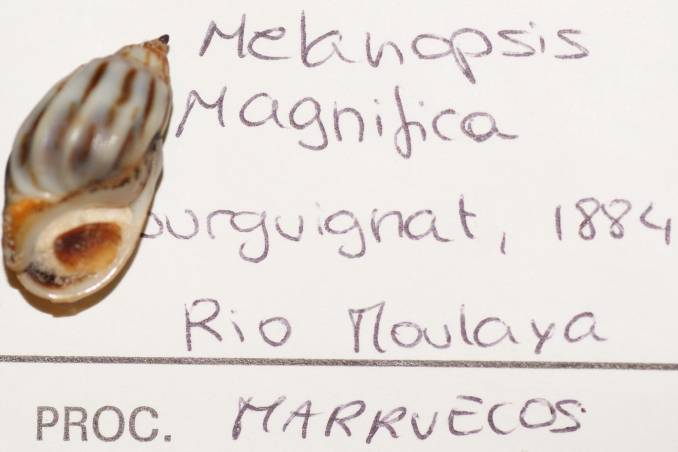 Melanopsis
Magnifica
ourguignat, 1884
Rio Moulaya
PROC. MARRUECOS